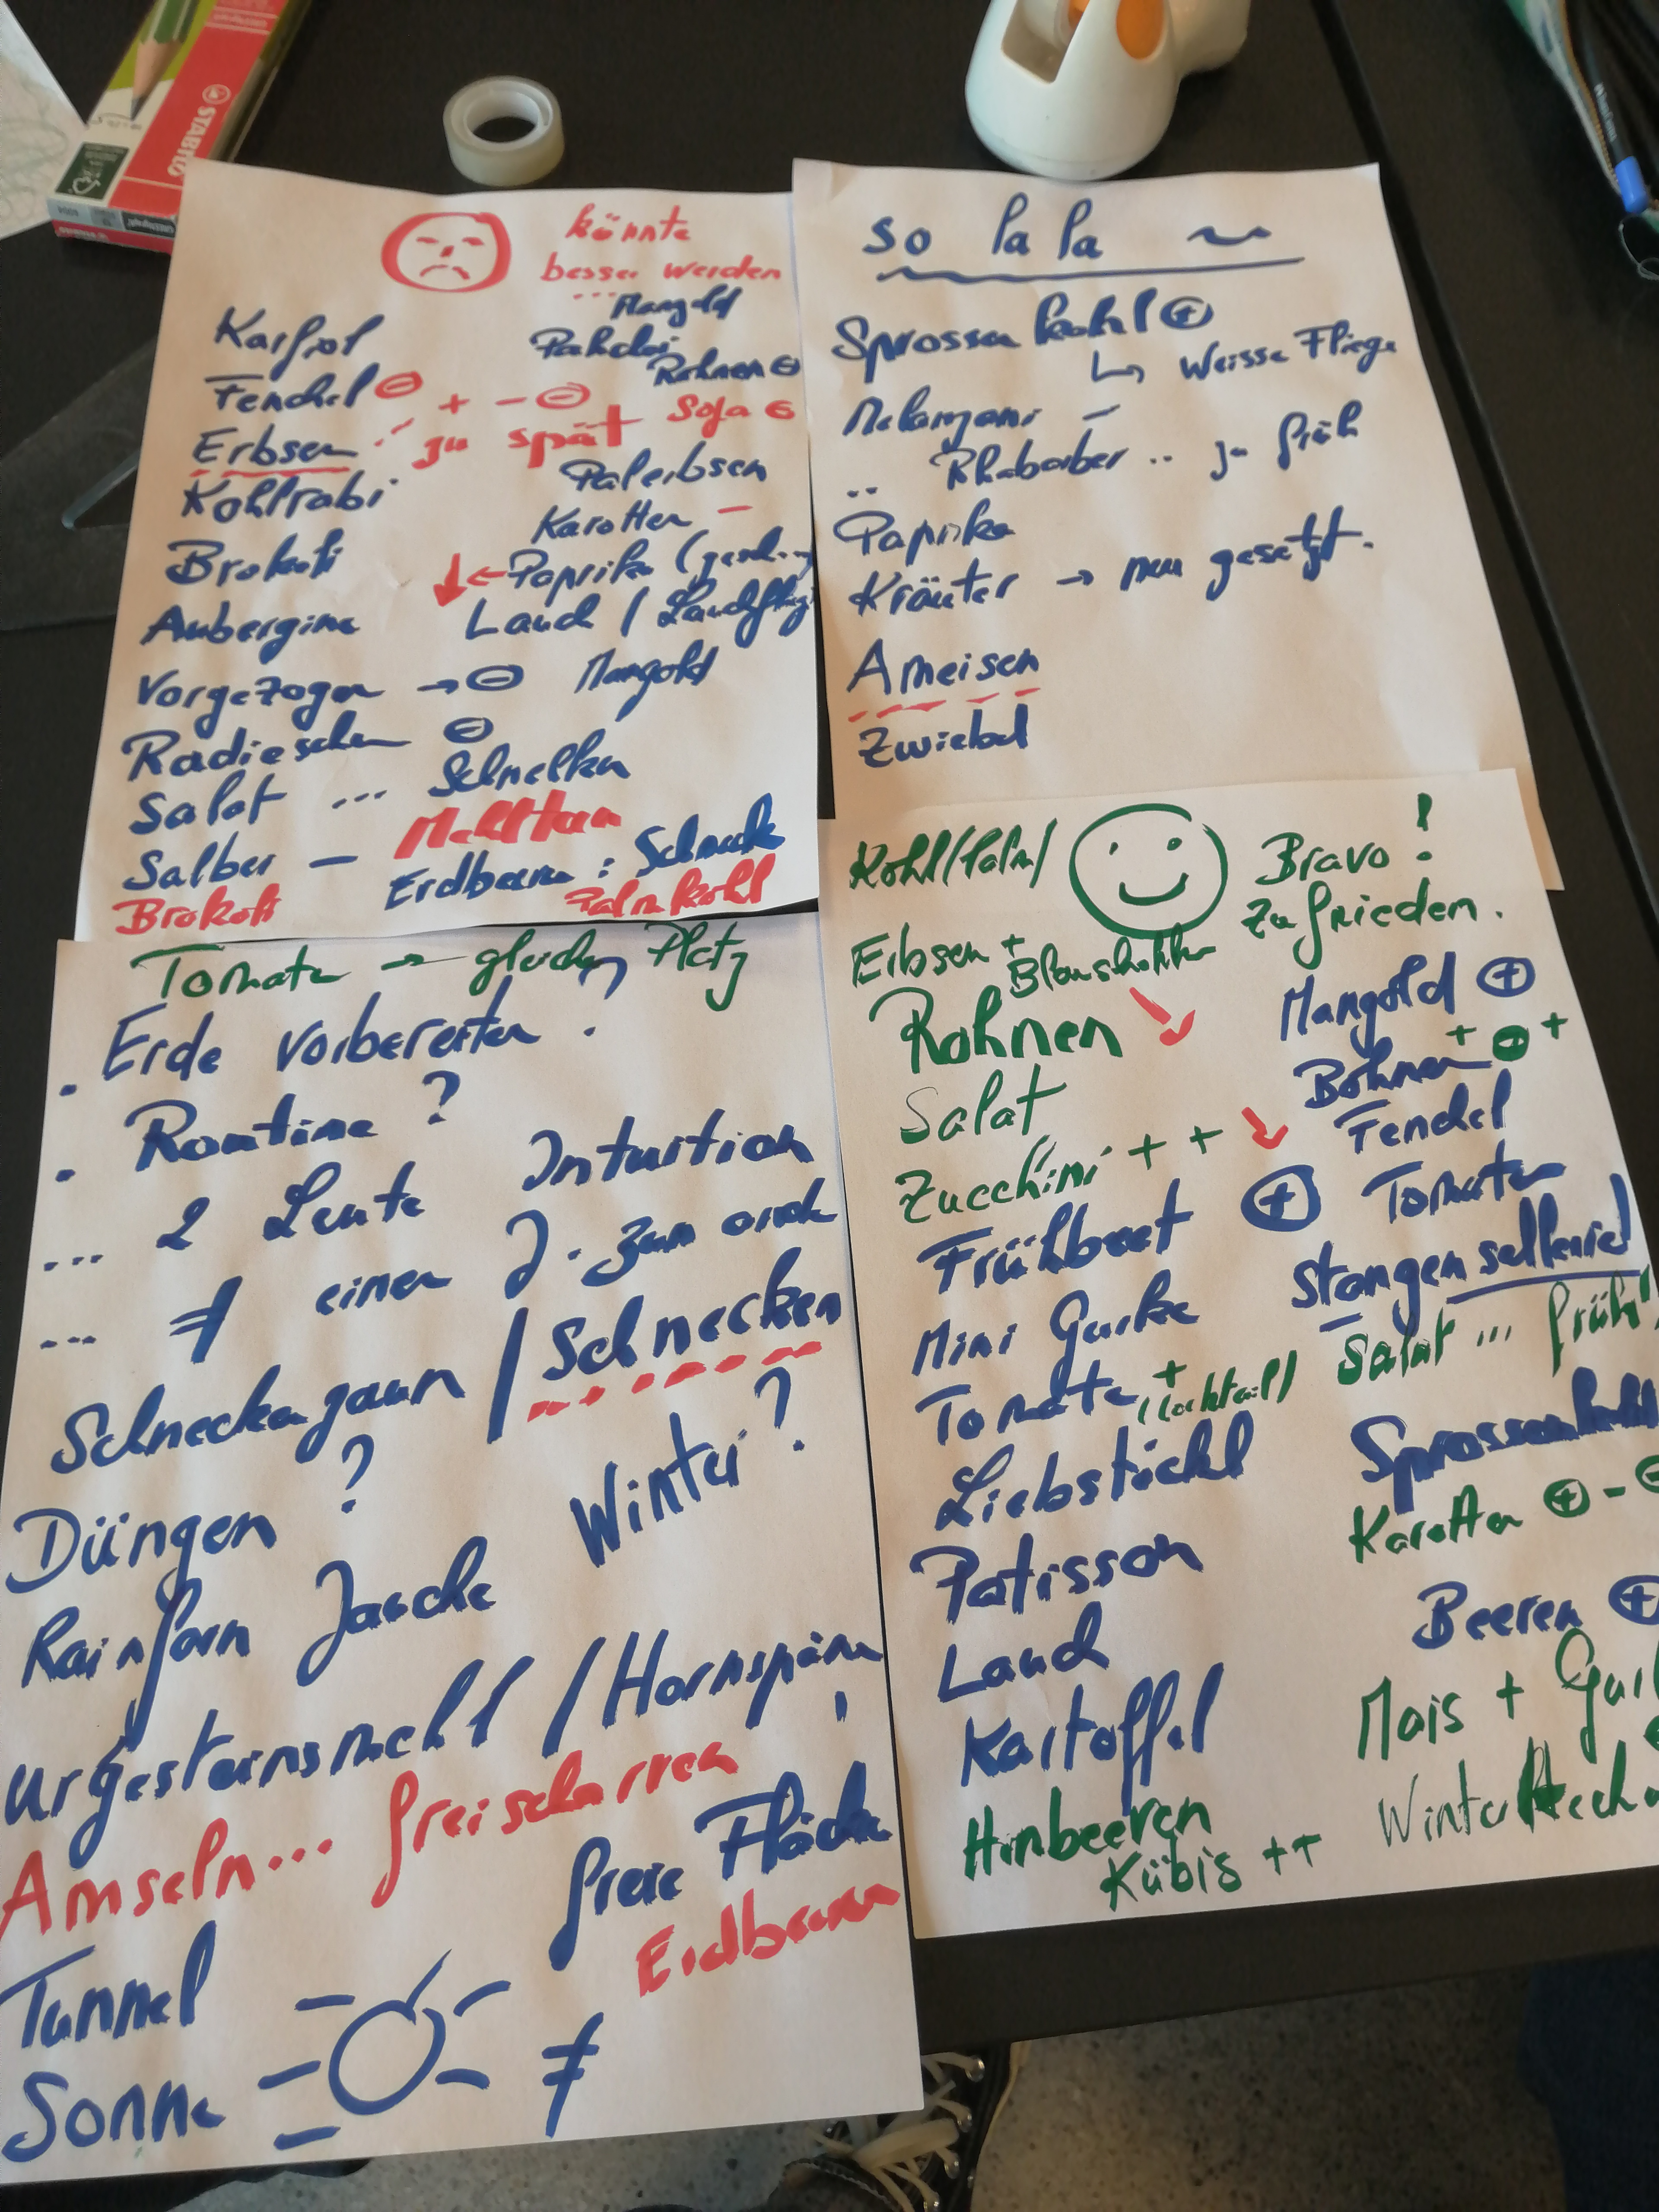 STABILO
könnte
besser werden
... Mangold
Karfiol
Pak choi
Fenchel ⊖ + - ⊖
Rohnen ⊖
Erbsen zu spät
Soja ⊖
Kohlrabi
Palerbsen
Karotten -
Brokoli
← Paprika
Aubergine
Lauch / Lauchfliege
Vorgezogen → ⊖ Mangold
Radieschen ⊖
Salat ... Schnelken
Salbei - Mehltau
Erdbeeren : Schneck
Brokoli
Palmkohl
so la la ~
Sprossenkohl ⊕
↳ Weisse Fliege
Melanzani -
.. Rhabarber .. zu früh
Paprika
Kräuter → neu gesetzt.
Ameisen
Zwiebel
Tomaten → gleicher Platz
. Erde vorbereiten ?
. Routine ?
... 2 Leute Intuition
... ≠ einen J. zum andr
Schneckenzaun / Schnecken
Düngen ? Winter ?
Rainfarn Jauche
Urgesteinsmehl / Hornspäne
Amseln... freischarren
freie Fläche
Erdbeeren
Tunnel
Sonne ≠
Kohl/Palm/ Bravo !
zufrieden.
Erbsen +
Rohnen
Mangold ⊕
Salat
Bohnen + ⊖ +
Fenchel
Zucchini + +
Frühbeet ⊕ Tomaten
Mini Gurke
Stangensellerie
Tomaten + (Cocktail)
Salat ... früh
Liebstöckl
Sprossenkohl
Karotten ⊕ - ⊖
Patisson
Beeren ⊕
Lauch
Mais +
Kartoffel
Himbeeren
Kübis ++